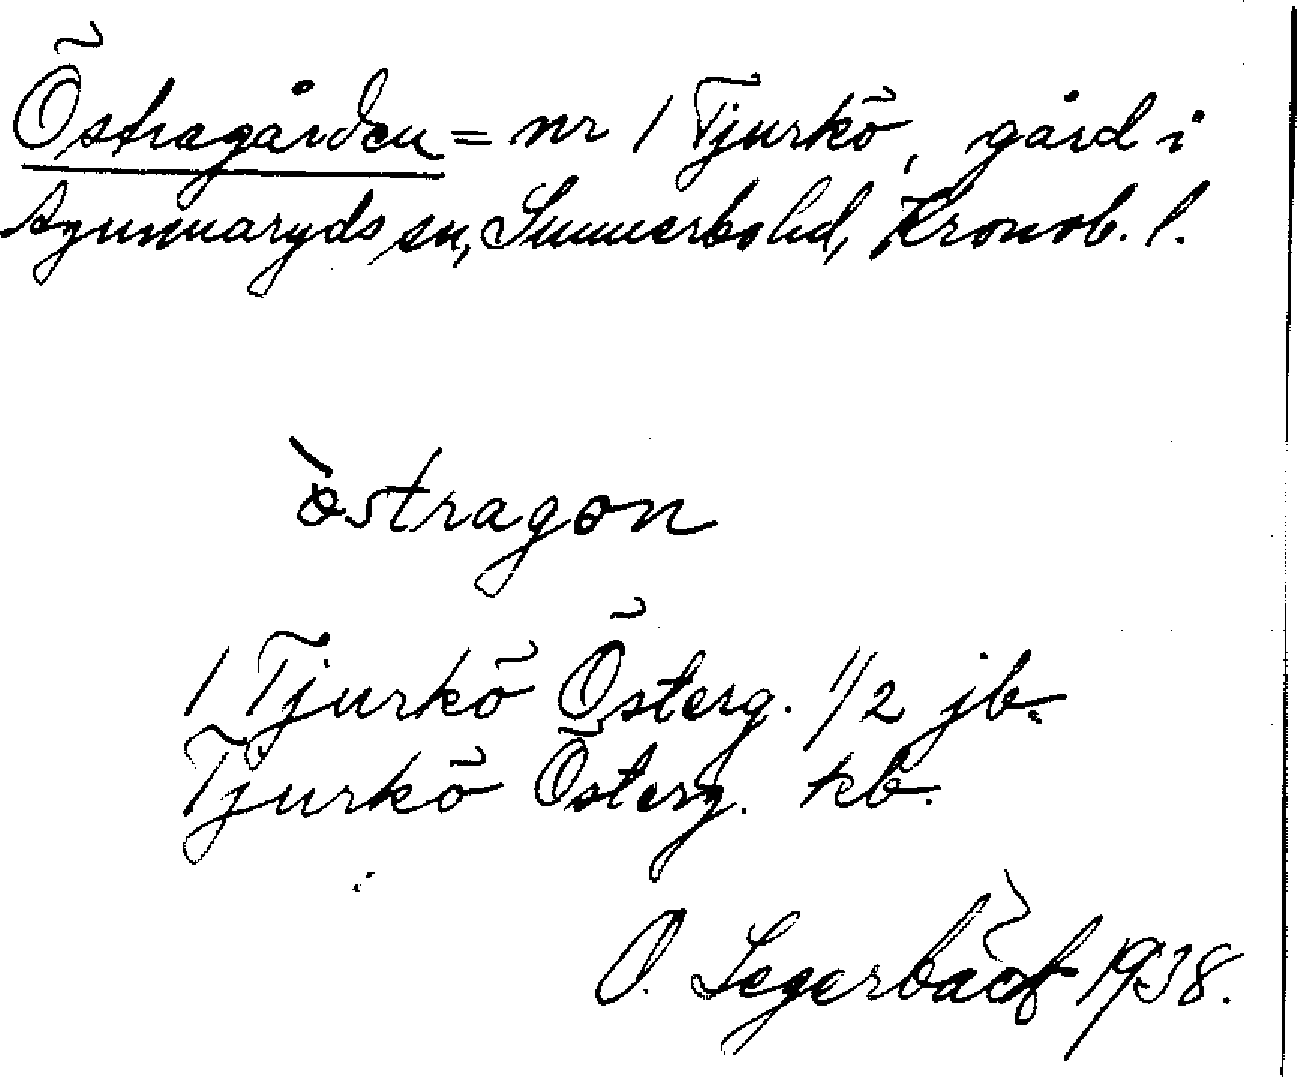 Östragården = nr 1 Tjurkö, gård i
Agunnaryds sn, Sunnerbo hd, Kronob. l.
östragon
1 Tjurkö Österg. 1/2 jb.
Tjurkö Österg. kb.
O. Segerbäck 1938.